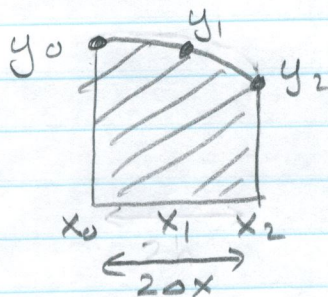 y₀ y₁ y₂
x₀ x₁ x₂
2Δx